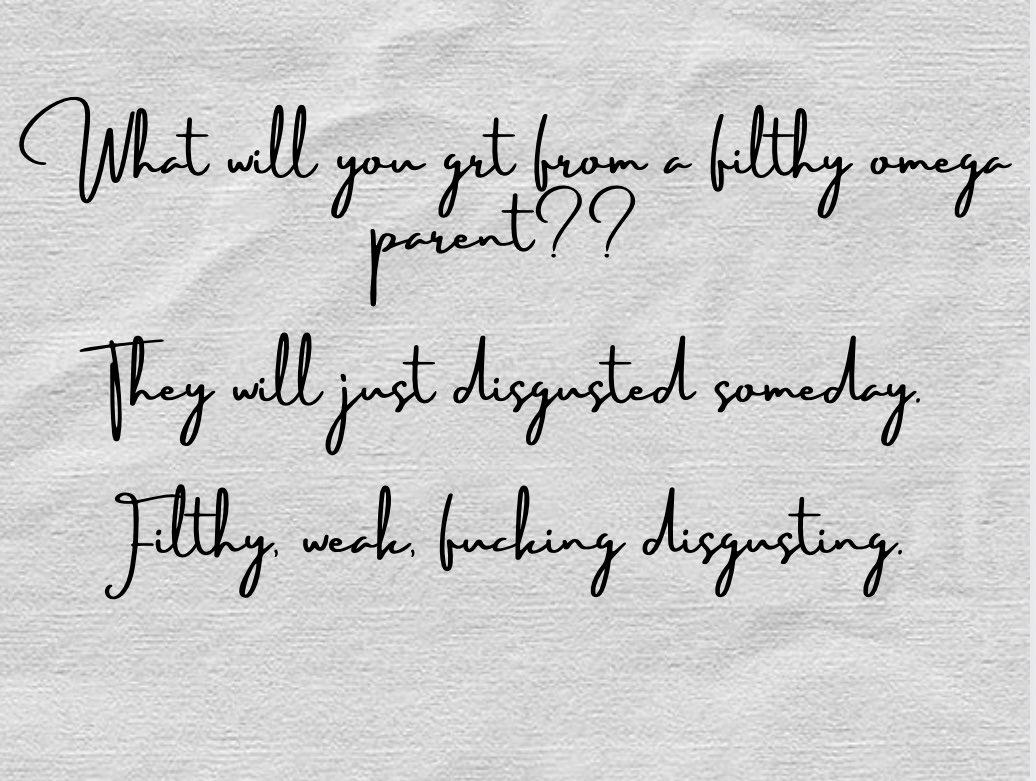 What will you grt from a filthy omega
parent??
They will just disgusted someday.
Filthy, weak, fucking disgusting.